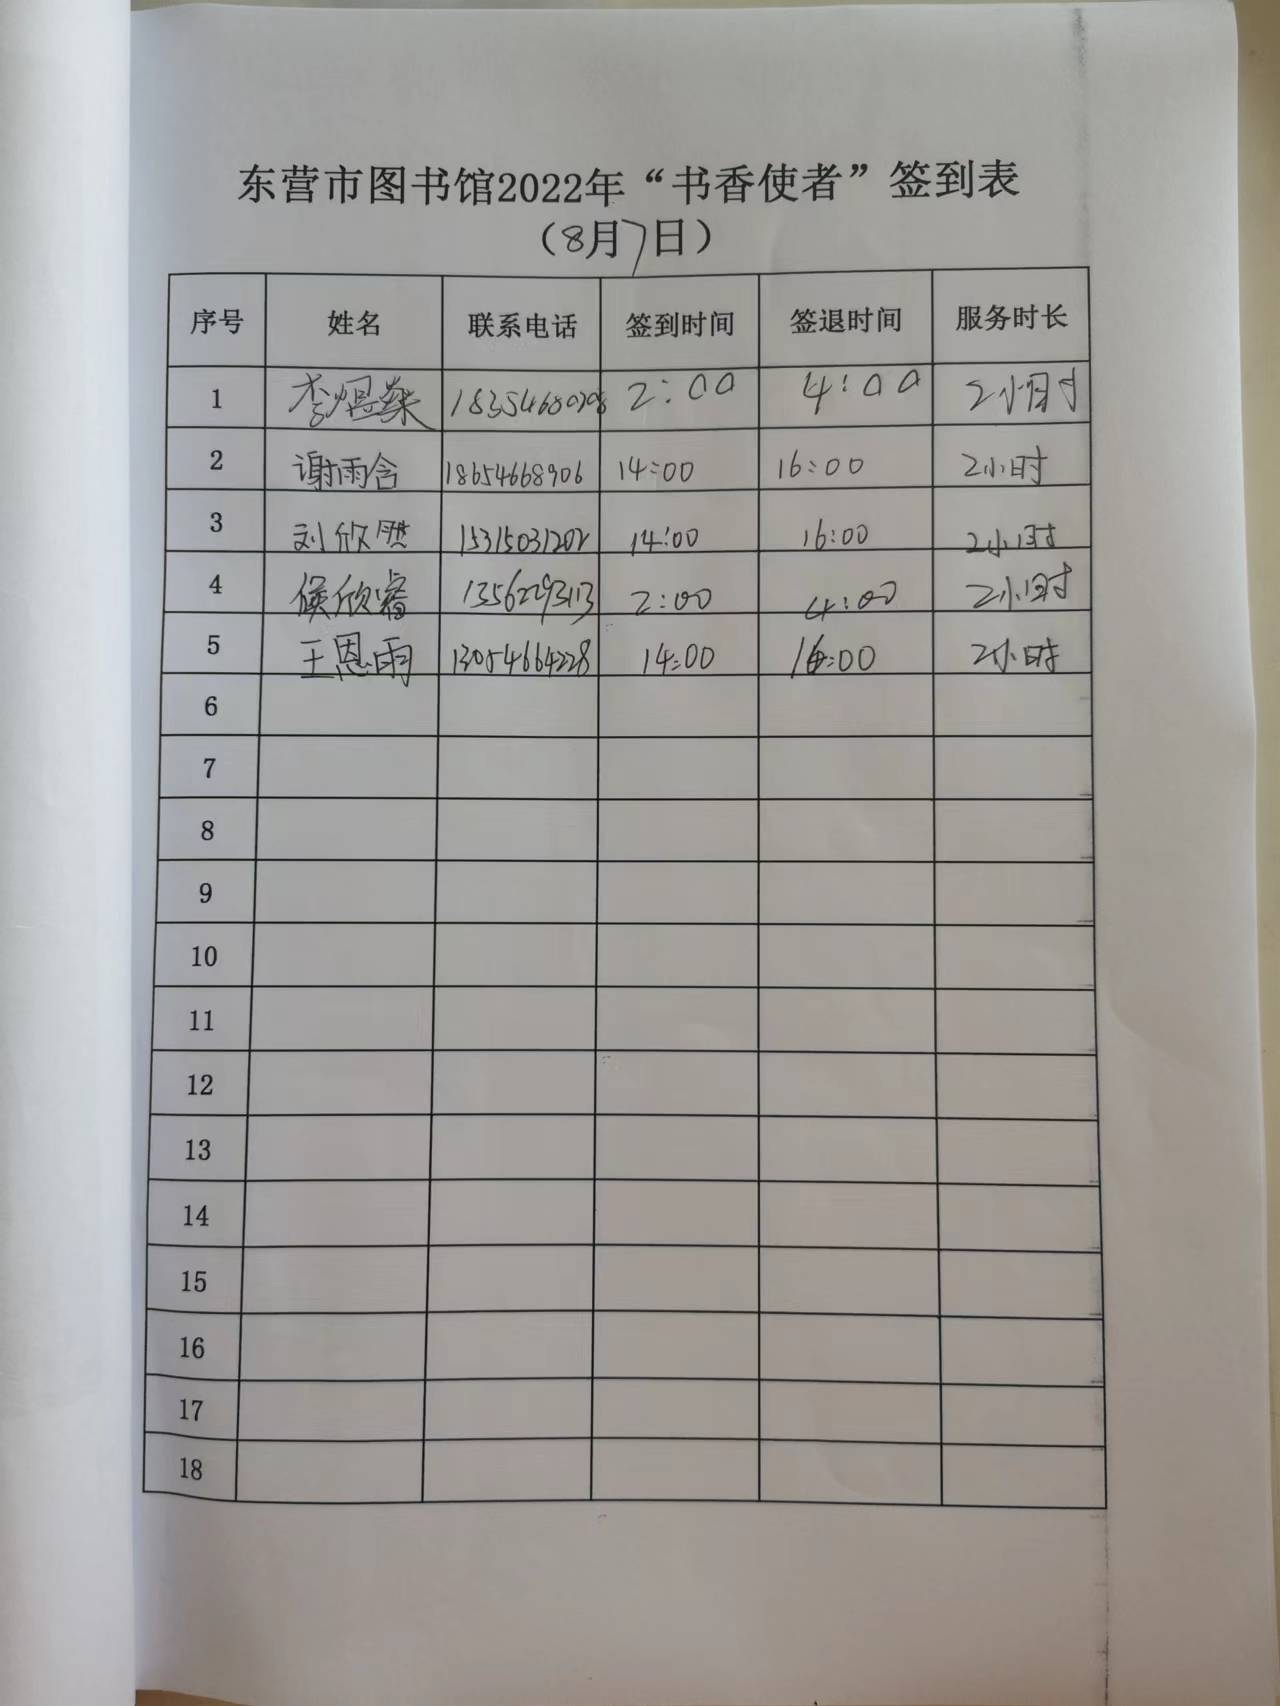 东营市图书馆2022年“书香使者”签到表
（8月7日）
序号 姓名 联系电话 签到时间 签退时间 服务时长
1 李煜燊 2:00 4:00 2小时
2 谢雨含 18654668906 14:00 16:00 2小时
3 刘欣然 15315031202 14:00 16:00 2小时
4 侯欣睿 13562293113 2:00 4:00 2小时
5 王恩雨 13054664228 14:00 16:00 2小时
6
7
8
9
10
11
12
13
14
15
16
17
18